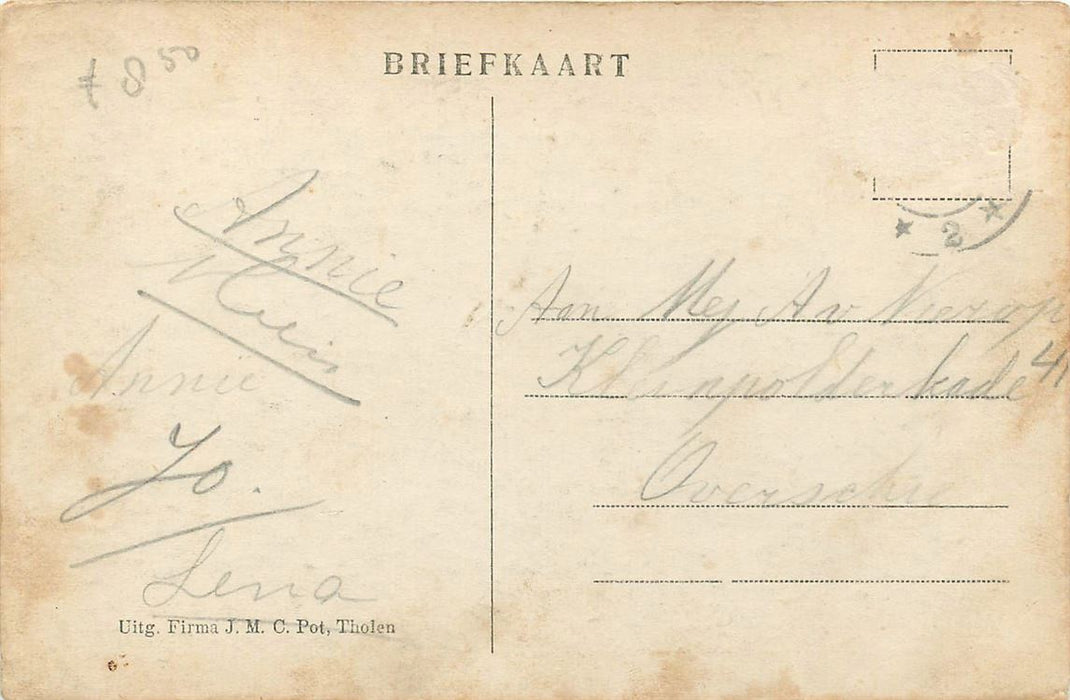 ƒ 8 50
BRIEFKAART
Annie
Annie
Jo.
Lena
Uitg. Firma J. M. C. Pot, Tholen
* 2 *
Aan Mej A v Nierop
Kleinpolderkade 41
Overschie